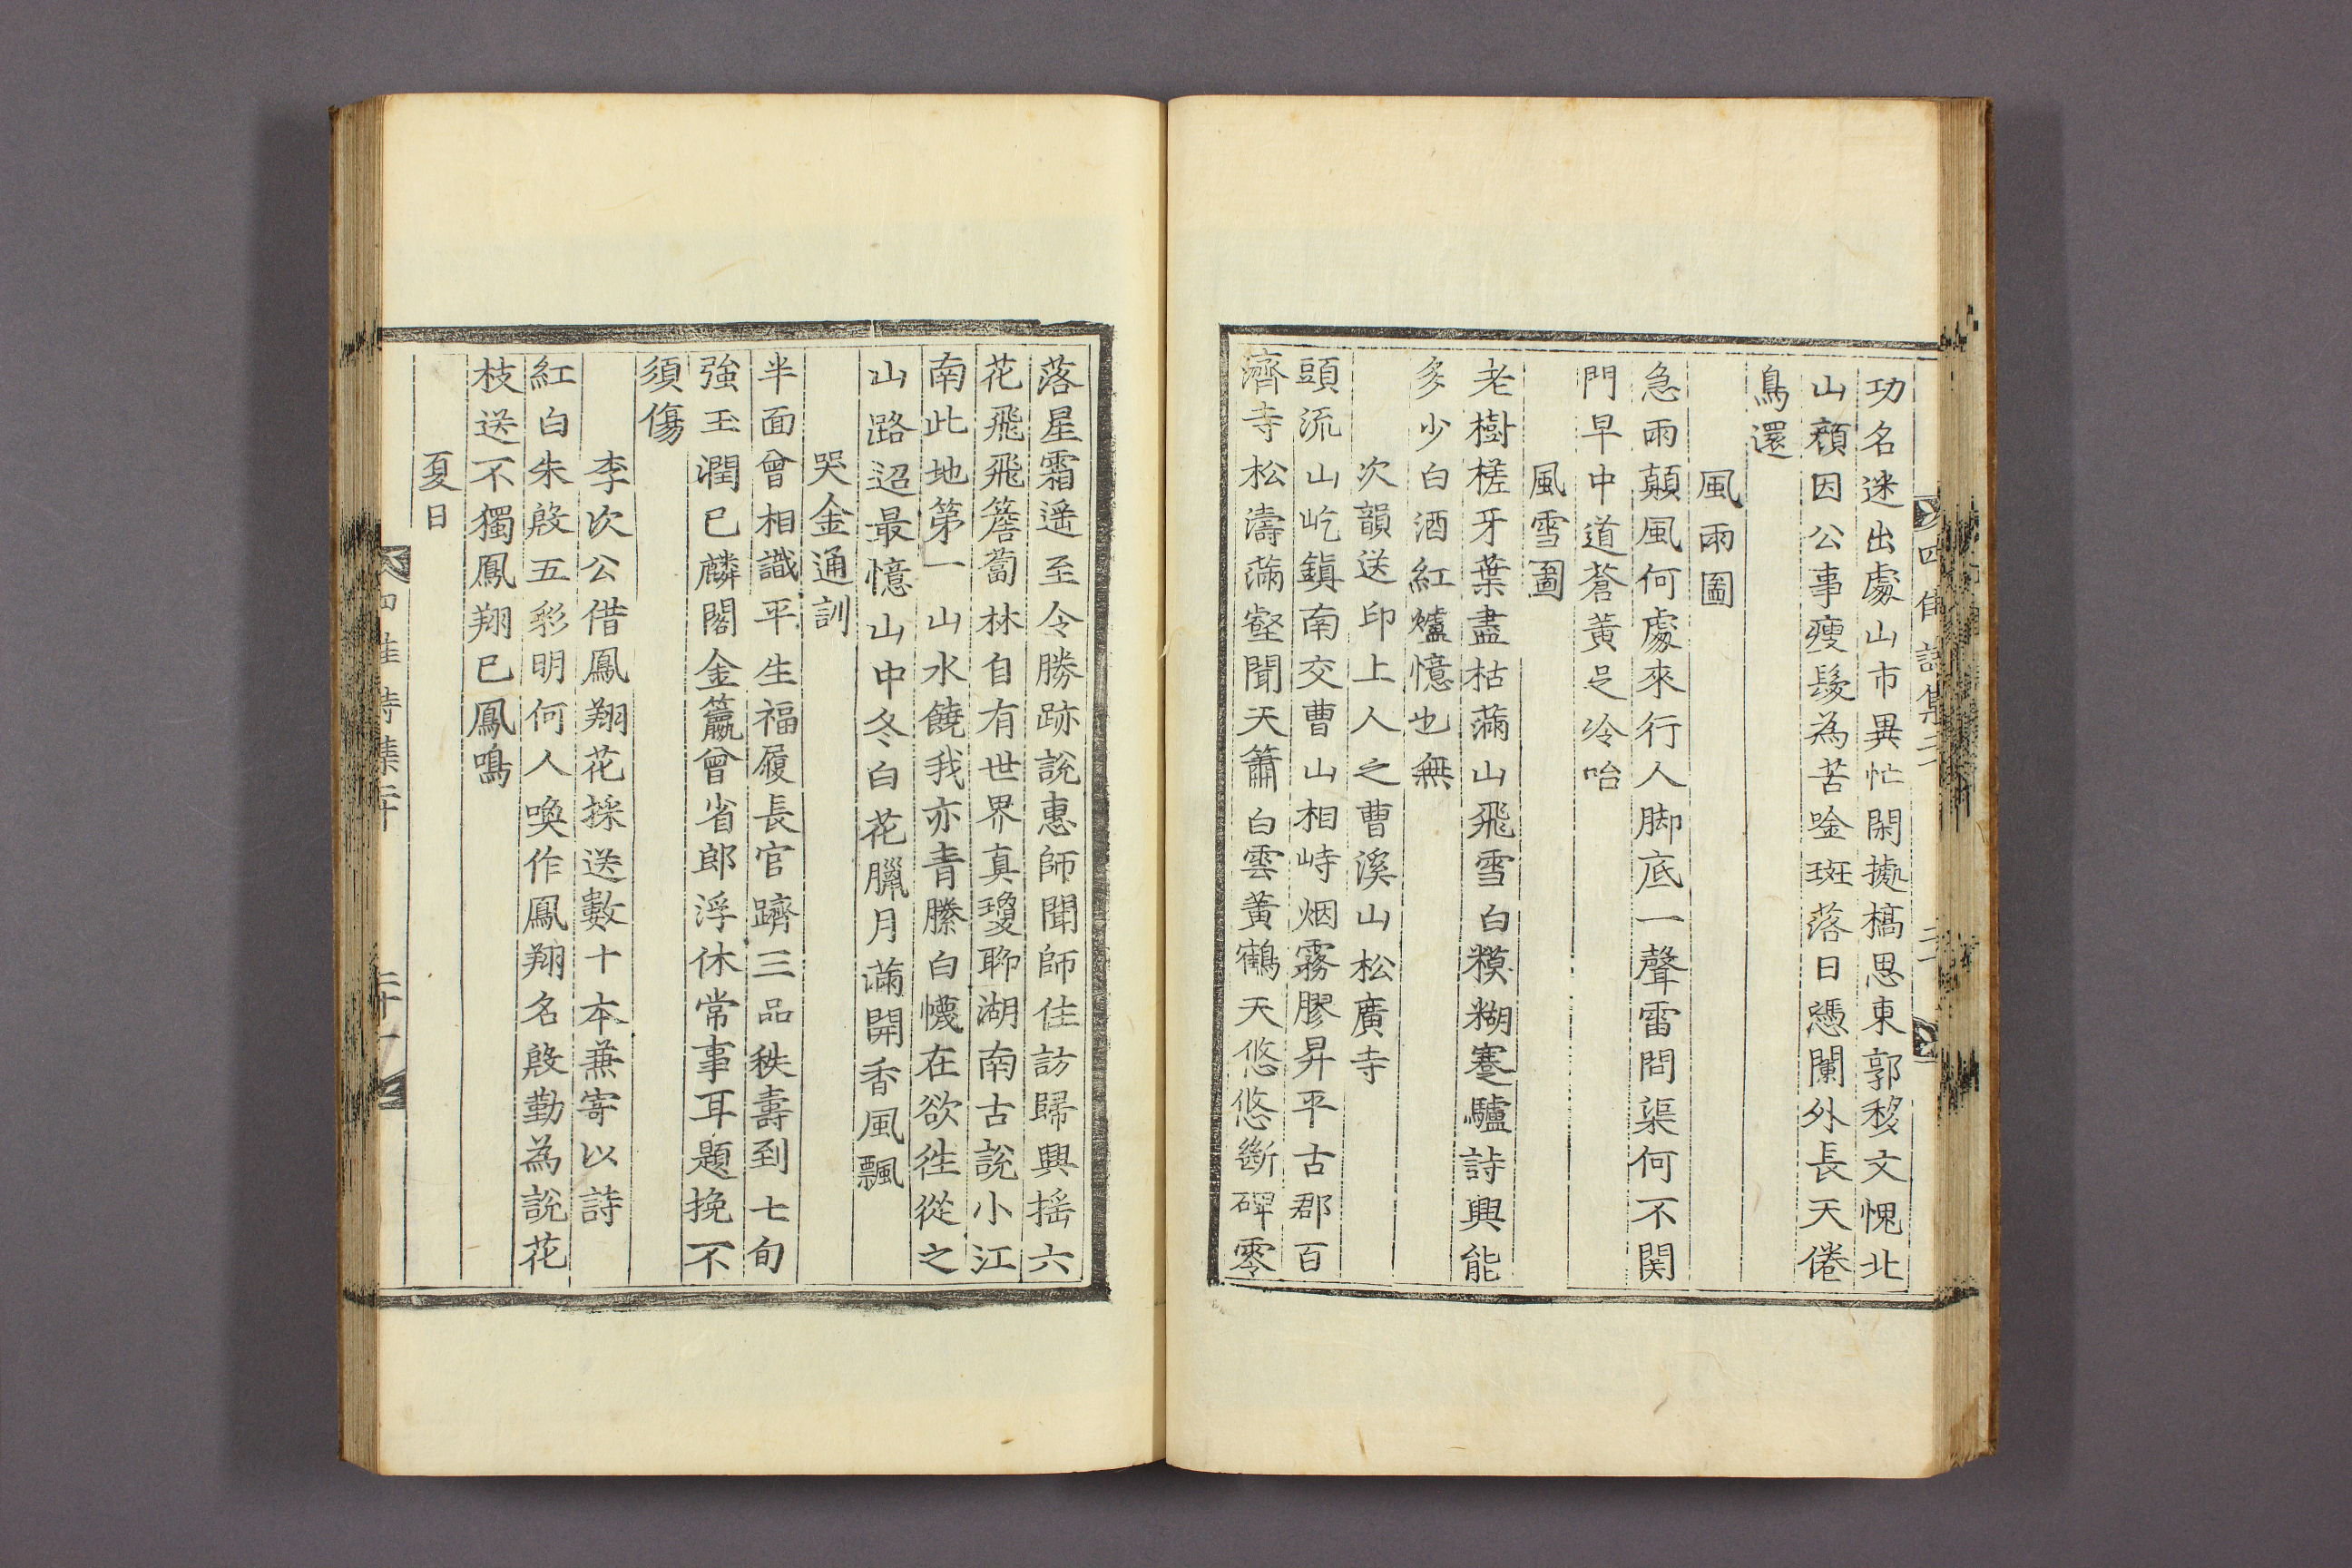 功名迷出處山市異忙閑擾槁思東郭移文愧北
山顔因公事瘦鬂為苦唫斑落日憑闌外長天倦
鳥還
風雨圖
急雨顛風何處來行人脚底一聲雷問渠何不関
門早中道蒼黃足冷咍
風雪圖
老樹槎牙葉盡枯滿山飛雪白糢糊蹇驢詩興能
多少白酒紅爐憶也無
次韻送印上人之曹溪山松廣寺
頭流山屹鎭南交曹山相峙烟霧膠昇平古郡百
濟寺松濤滿壑聞天簫白雲黃鶴天悠悠斷碑零
落星霜遥至今勝跡說惠師聞師住訪歸興揺六
花飛飛簷蔔林自有世界真瓊聊湖南古說小江
南此地第一山水饒我亦青縢白幭在欲徃從之
山路迢最憶山中冬白花臘月滿開香風飄
哭金通訓
半面曾相識平生福履長官躋三品秩壽到七旬
強玉潤已麟閣金籯曾省郎浮休常事耳題挽不
須傷
李次公借鳳翔花採送數十本兼寄以詩
紅白朱殷五彩明何人喚作鳳翔名殷勤為說花
枝送不獨鳳翔已鳳鳴
夏日
四佳詩集